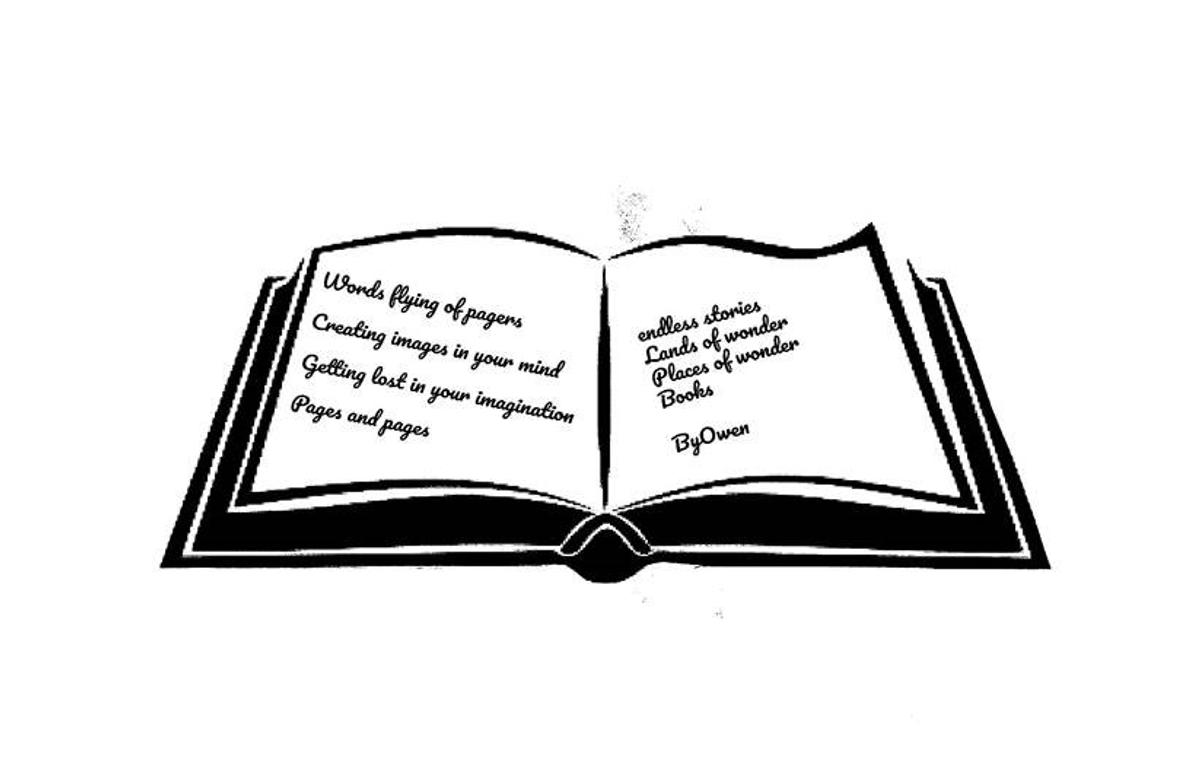 Words flying of pagers
Creating images in your mind
Getting lost in your imagination
Pages and pages
endless stories
Lands of wonder
Places of wonder
Books
ByOwen